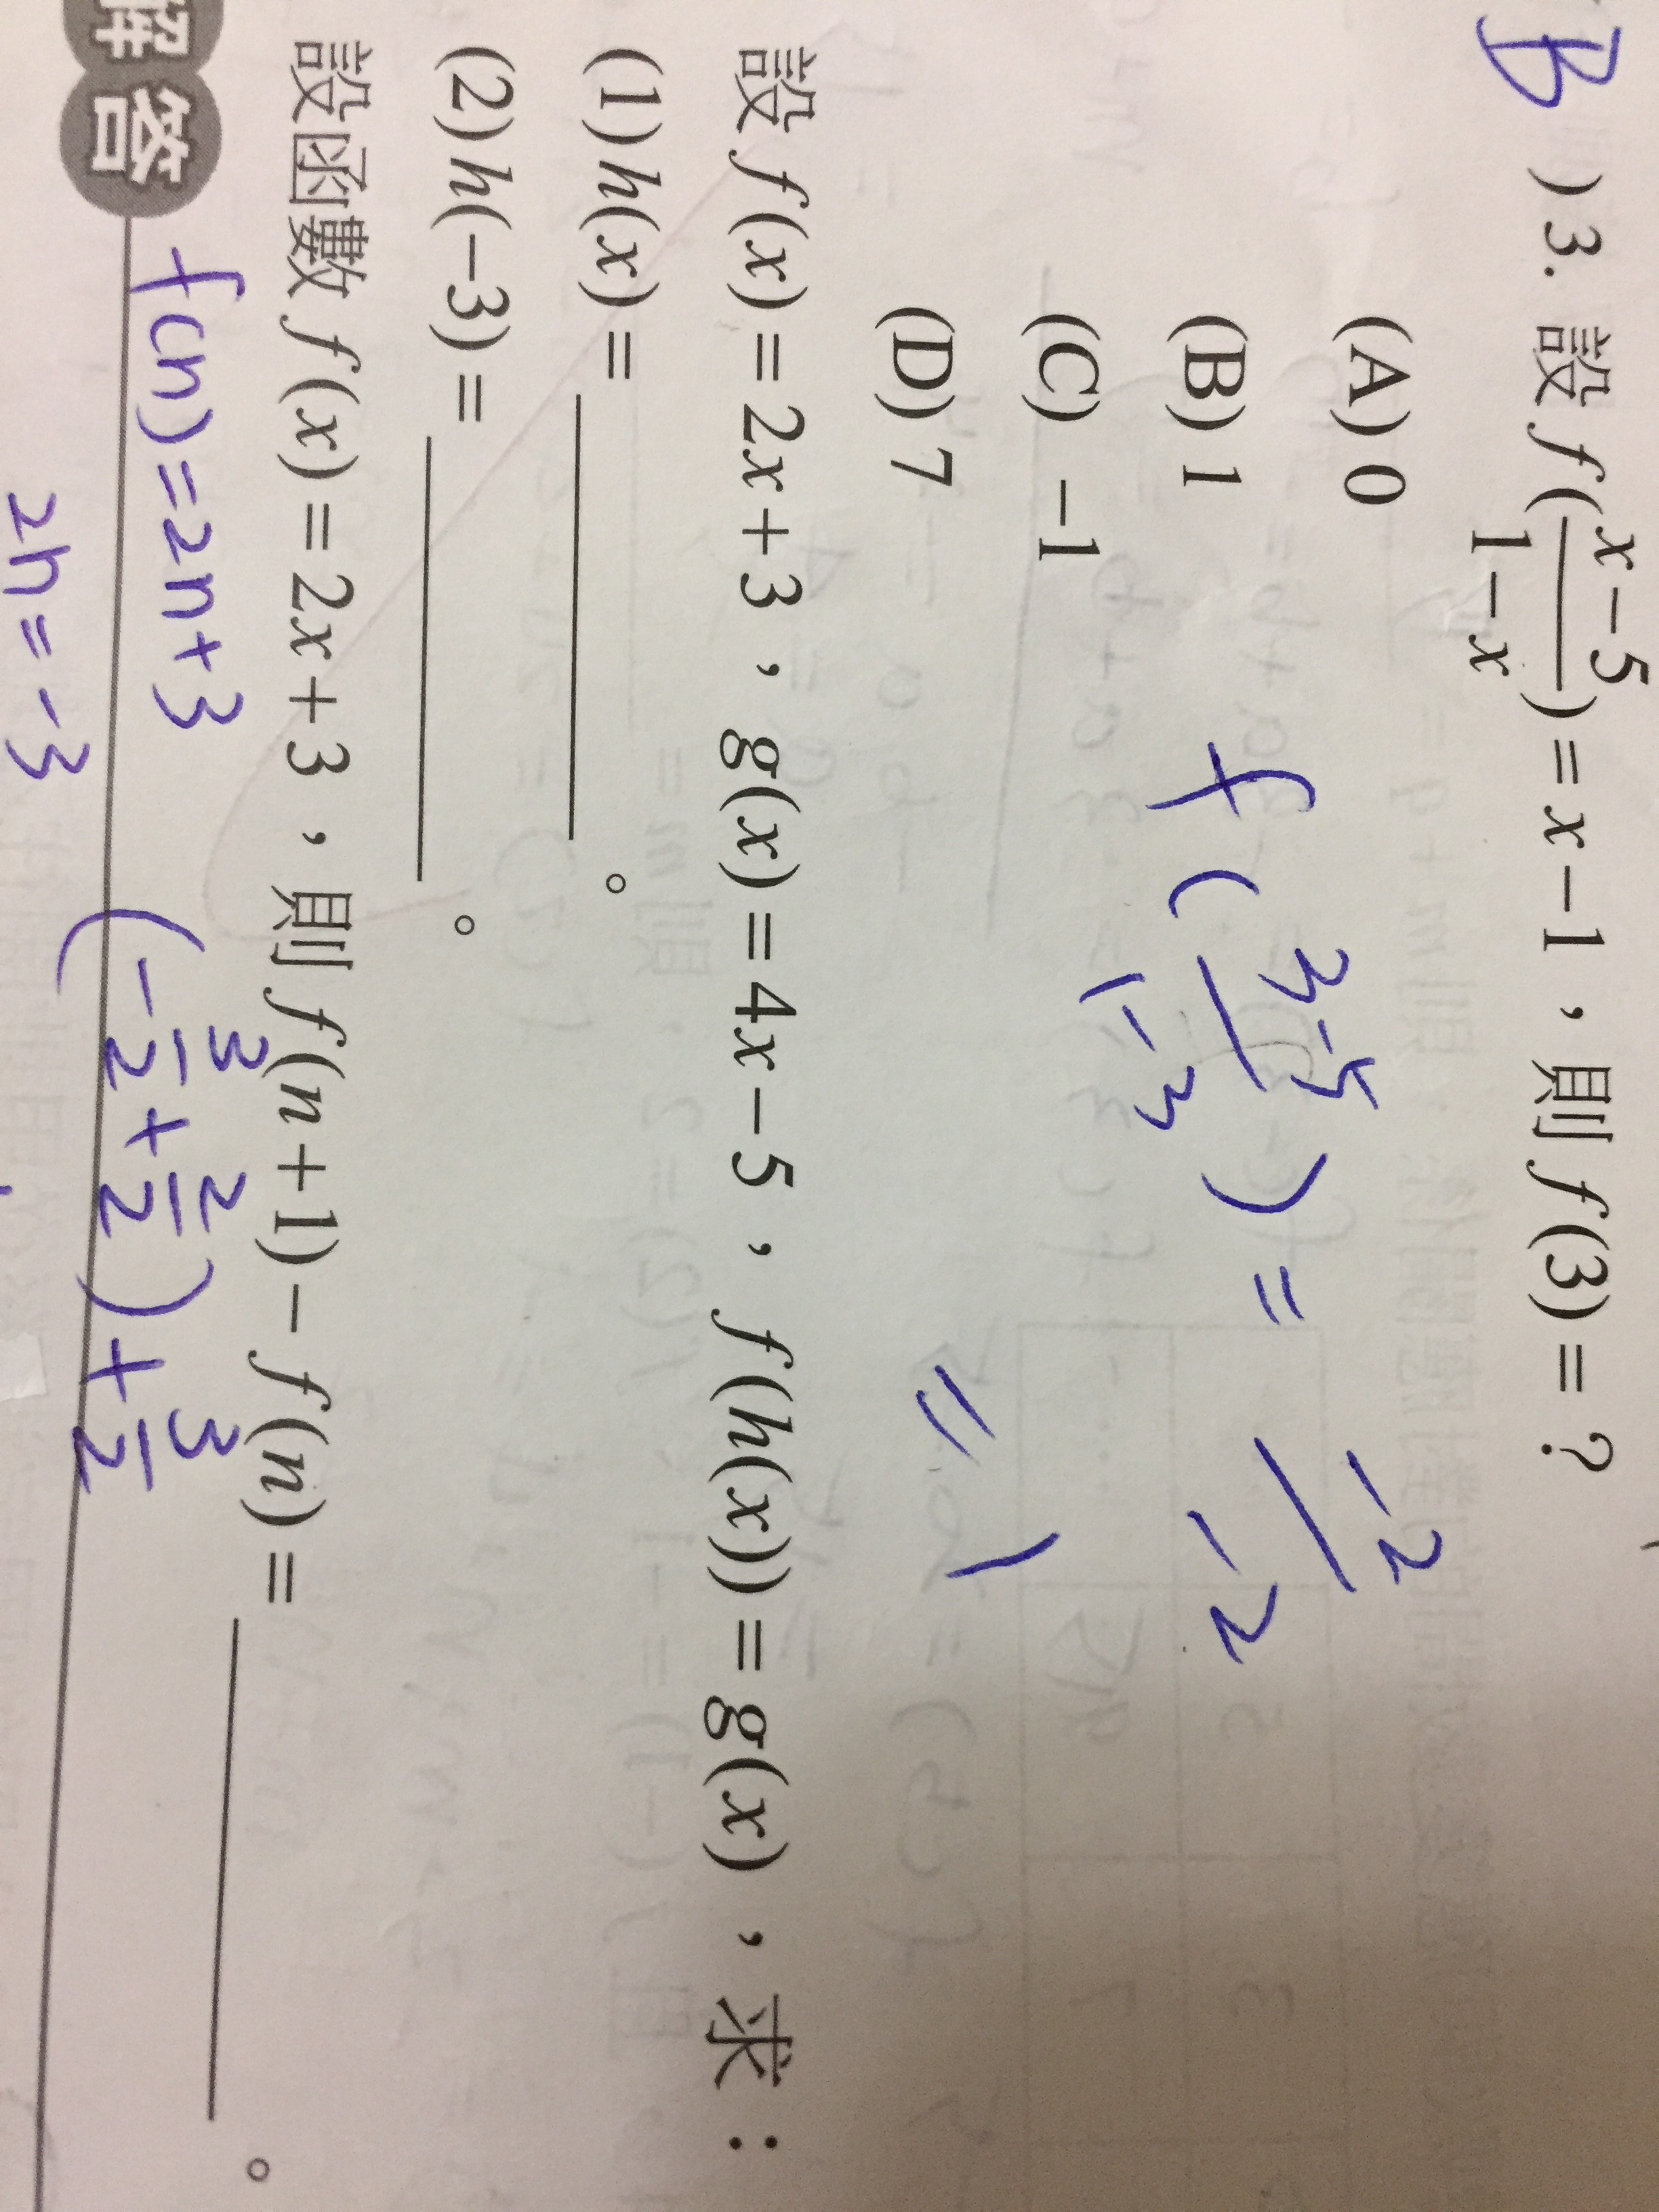 B ) 3. 設 f(\frac{x-5}{1-x}) = x-1，則 f(3) = ?
(A) 0
(B) 1
(C) -1
(D) 7
f(\frac{3-5}{1-3}) = \frac{-2}{-2}
= 1
設 f(x) = 2x+3，g(x) = 4x-5，f(h(x)) = g(x)，求：
(1) h(x) = ＿＿＿＿。
(2) h(-3) = ＿＿＿＿。
設函數 f(x) = 2x+3，則 f(n+1) - f(n) = ＿＿＿＿。
解答
f(n) = 2n+3
(-\frac{3}{2}+\frac{2}{2})+\frac{3}{2}
2n = -3